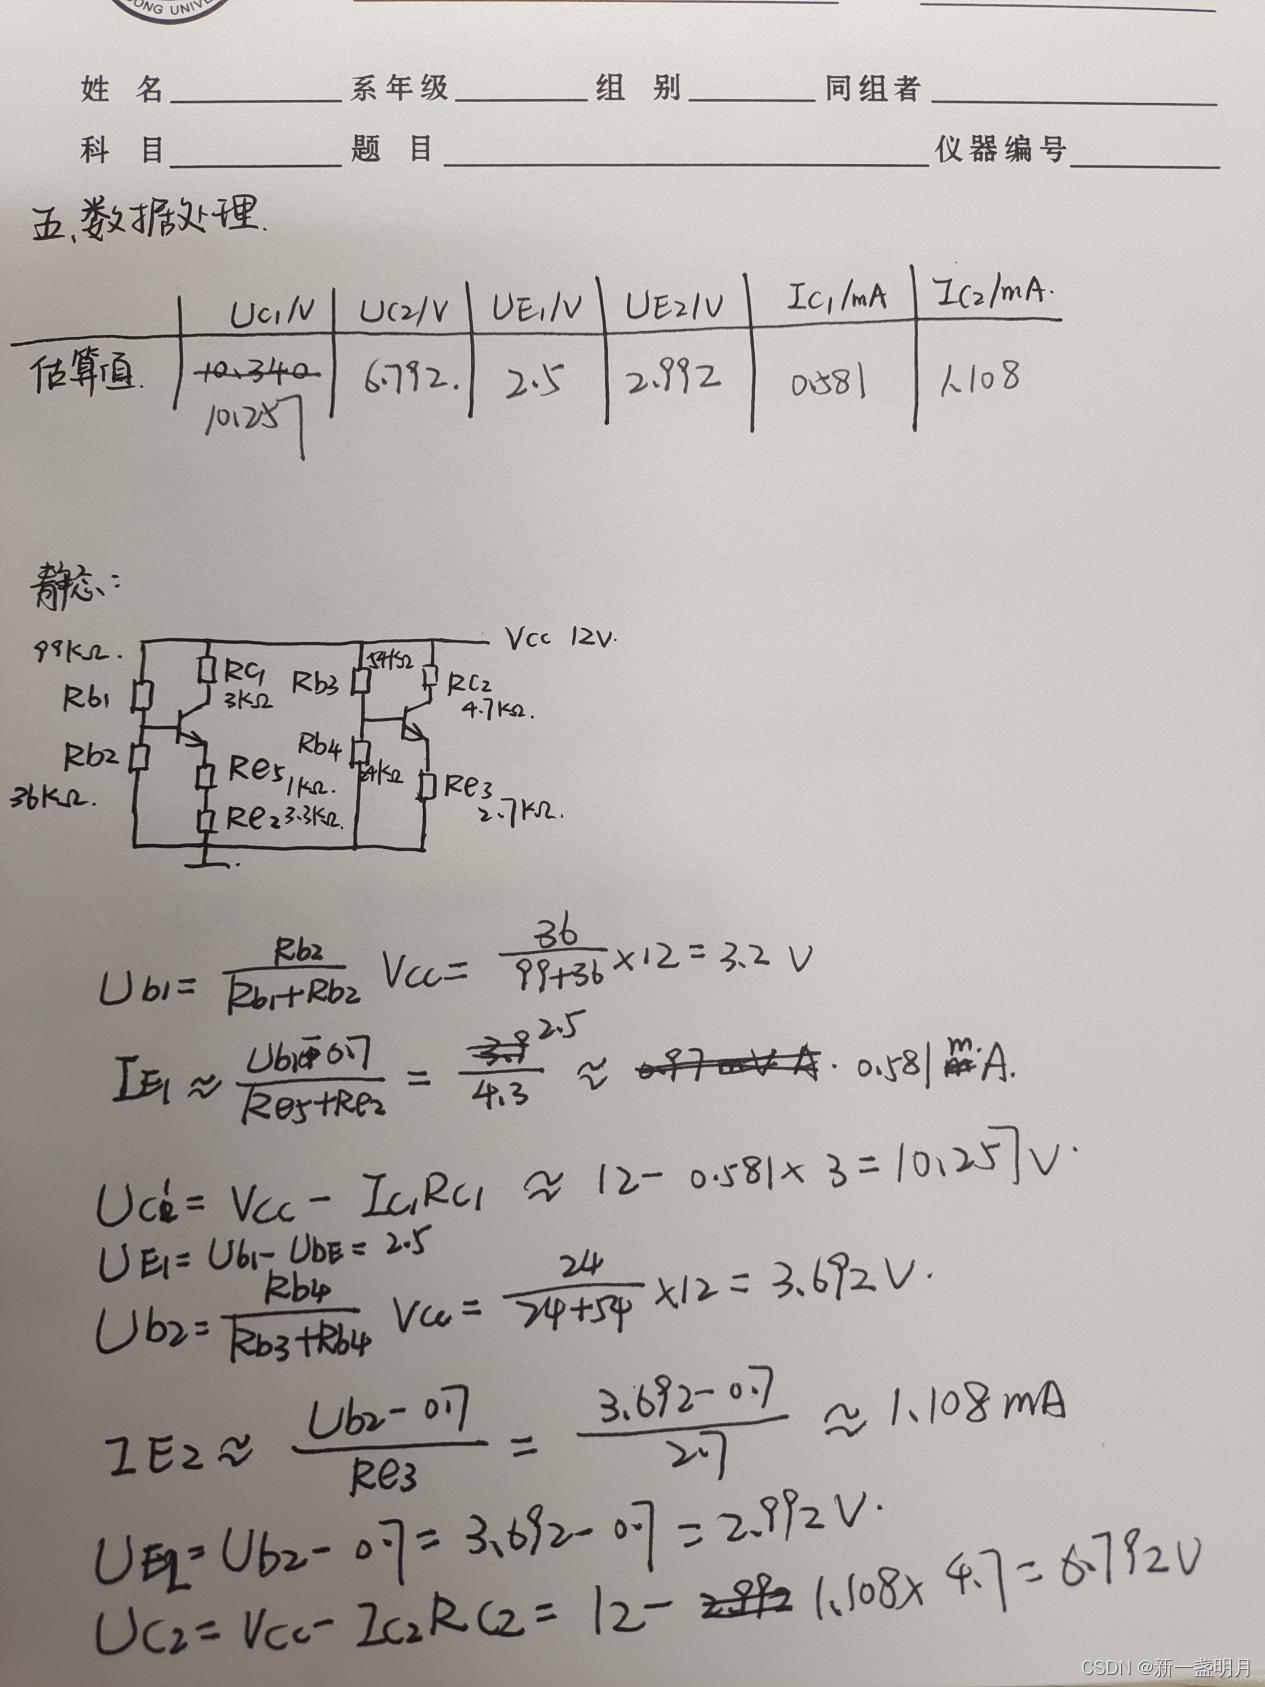 ONG UNIVE
姓 名 系年级 组 别 同组者
科 目 题 目 仪器编号
五、数据处理.
UC1/V UC2/V UE1/V UE2/V IC1/mA IC2/mA.
估算值. 10.340 6.792. 2.5 2.992 0.581 1.108
10.257
静态:
99KΩ. Vcc 12V.
Rb1 RC1 3KΩ Rb3 54KΩ RC2 4.7KΩ.
Rb2 36KΩ. Re5 1KΩ. Rb4 24KΩ Re3 2.7KΩ.
Re2 3.3KΩ.
Ub1 = Rb2/(Rb1+Rb2) Vcc = 36/(99+36) ×12 = 3.2 V
IE1 ≈ (Ub1-0.7)/(Re5+Re2) = 2.5/4.3 ≈ 0.581 mA.
UC1 = Vcc - IC1RC1 ≈ 12 - 0.581×3 = 10.257V.
UE1 = Ub1 - UbE = 2.5
Ub2 = Rb4/(Rb3+Rb4) Vcc = 24/(24+54) ×12 = 3.692V.
IE2 ≈ (Ub2-0.7)/Re3 = (3.692-0.7)/2.7 ≈ 1.108mA
UE2 = Ub2 - 0.7 = 3.692 - 0.7 = 2.992V.
UC2 = Vcc - IC2RC2 = 12 - 2.992 1.108× 4.7 = 6.792V
CSDN @新一盏明月